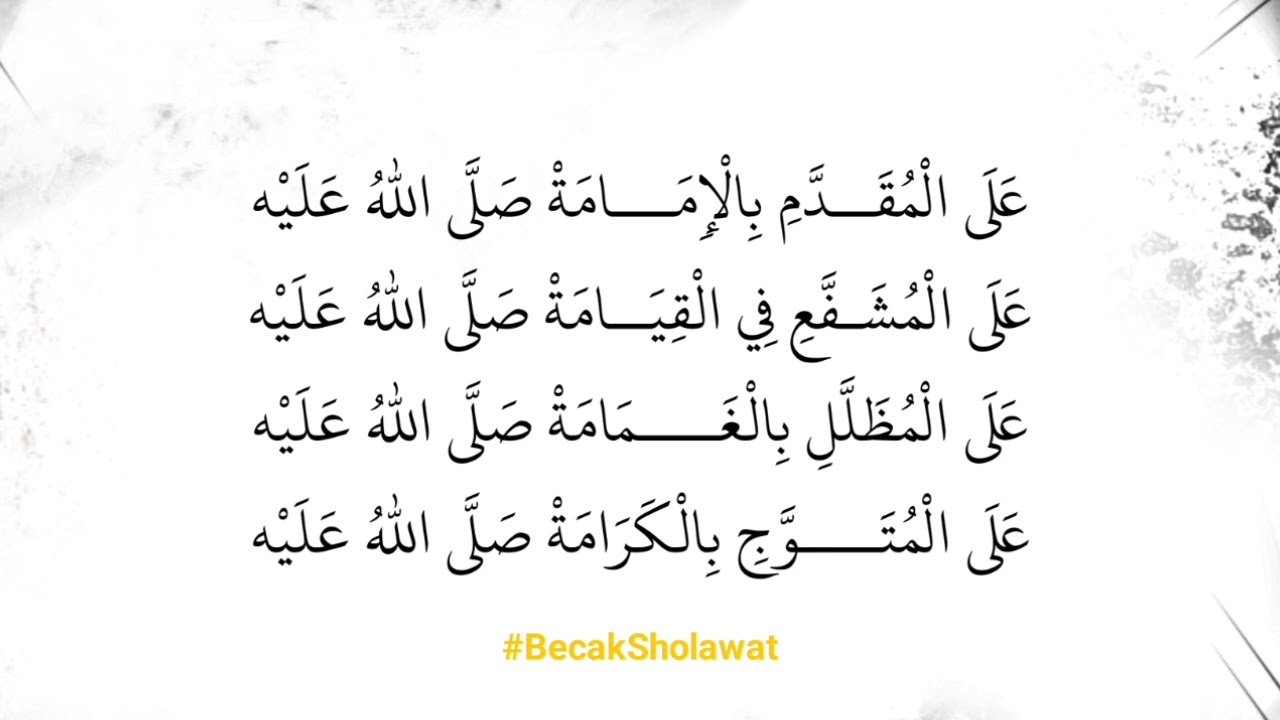 عَلَى الْمُقَـــدَّمِ بِالْإِمَـــامَةْ صَلَّى اللهُ عَلَيْه
عَلَى الْمُشَـفَّعِ فِي الْقِيَـــامَةْ صَلَّى اللهُ عَلَيْه
عَلَى الْمُظَلَّلِ بِالْغَـــــمَامَةْ صَلَّى اللهُ عَلَيْه
عَلَى الْمُتَـــــوَّجِ بِالْكَرَامَةْ صَلَّى اللهُ عَلَيْه
#BecakSholawat